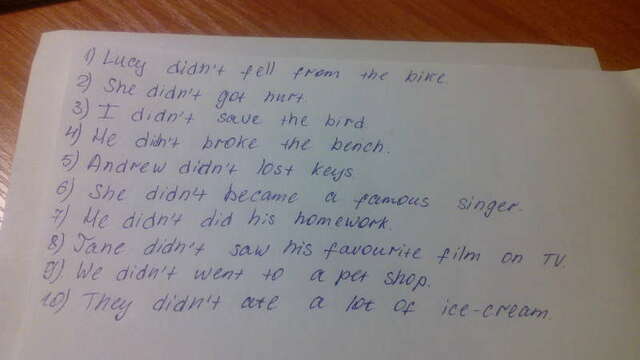 1) Lucy didn't fell from the bike.
2) She didn't got hurt.
3) I didn't save the bird
4) He didn't broke the bench.
5) Andrew didn't lost keys
6) She didn't became a famous singer.
7) He didn't did his homework.
8) Jane didn't saw his favourite film on TV.
9) We didn't went to a pet shop.
10) They didn't ate a lot of ice-cream.